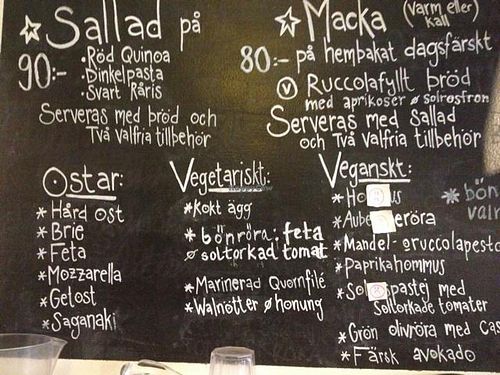 ☆ Sallad på
90:- • Röd Quinoa
• Dinkelpasta
• Svart Råris
Serveras med bröd och
Två valfria tillbehör
☆ Macka (varm eller)
kall
80:- på hembakat dagsfärskt
Ⓥ Ruccolafyllt bröd
med aprikoser ø solrosfrön
Serveras med Sallad
och Två valfria tillbehör
Ostar:
* Hård ost
* Brie
* Feta
* Mozzarella
* Getost
* Saganaki
Vegetariskt:
* Kokt ägg
* bönröra: feta
ø soltorkad tomat
* Marinerad Quornfilé
* Walnötter ø honung
Veganskt:
* Ho us
* Aube eröra
* Mandel- ø ruccolapesto
* Paprikahommus
* Sol pastej med
Soltorkade tomater
* Grön olivröra med
* Färsk avokado
* bön